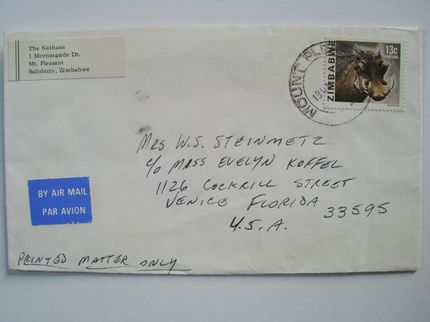 The Nathans
1 Morningside Dr.
Mt. Pleasant
Salisbury, Zimbabwe
13c
ZIMBABWE
MOUNT
MRS W.S. STEINMETZ
c/o MASS EVELYN KOFFEL
1126 COCKRILL STREET
VENICE FLORIDA 33595
U.S.A.
BY AIR MAIL
PAR AVION
PRINTED MATTER ONLY